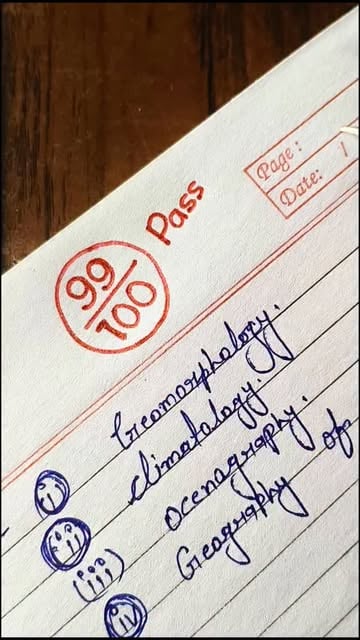 Page:
Date: 1
99/100 Pass
(i) Geomorphology.
(ii) climatology.
(iii) ocenography.
(iv) Geography of